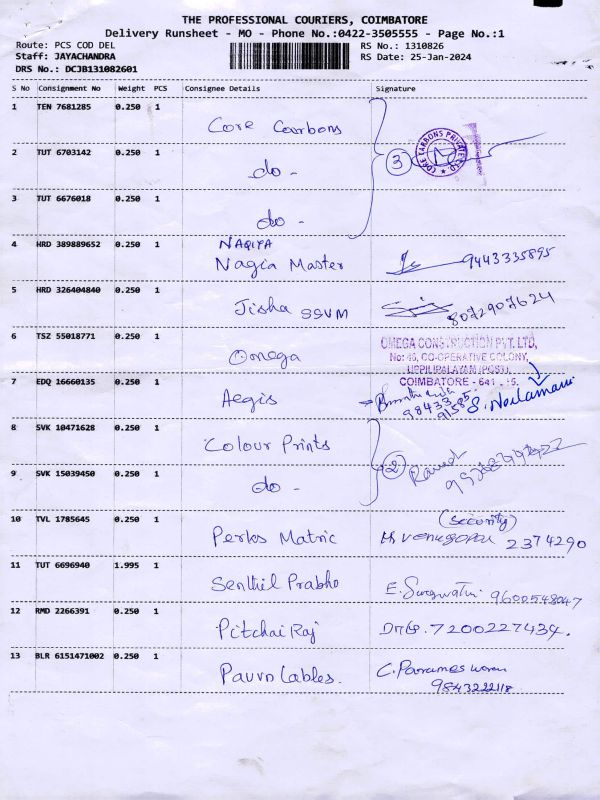 THE PROFESSIONAL COURIERS, COIMBATORE
Delivery Runsheet - MO - Phone No.:0422-3505555 - Page No.:1
Route: PCS COD DEL
RS No.: 1310826
Staff: JAYACHANDRA
RS Date: 25-Jan-2024
DRS No.: DCJB131082601
S No Consignment No Weight PCS Consignee Details Signature
1 TEN 7681285 0.250 1 Core Carbons
CORE CARBONS PRIVATE
2 TUT 6703142 0.250 1 do - 3
3 TUT 6676018 0.250 1 do -
4 HRD 389889652 0.250 1 NAQIYA
Nagia Master 9443335895
5 HRD 326404840 0.250 1 Jisha SSVM 8072907624
6 TSZ 55018771 0.250 1 Omega
OMEGA CONSTRUCTION PVT. LTD,
CO-OPERATIVE COLONY,
UPPILIPALAYAM (POST),
COIMBATORE - 641
7 EDQ 16660135 0.250 1 Aegis
98433
91585
8 SVK 10471628 0.250 1 Colour Prints
9 SVK 15039450 0.250 1 do - 2
10 TVL 1785645 0.250 1 Perks Matric (Security)
venugopal 2374290
11 TUT 6696940 1.995 1 Senthil Prabho E. 9600548047
12 RMD 2266391 0.250 1 Pitchai Raj 7200227434.
13 BLR 6151471002 0.250 1 Pavvn Lables. C. Parameswaran
9843222118